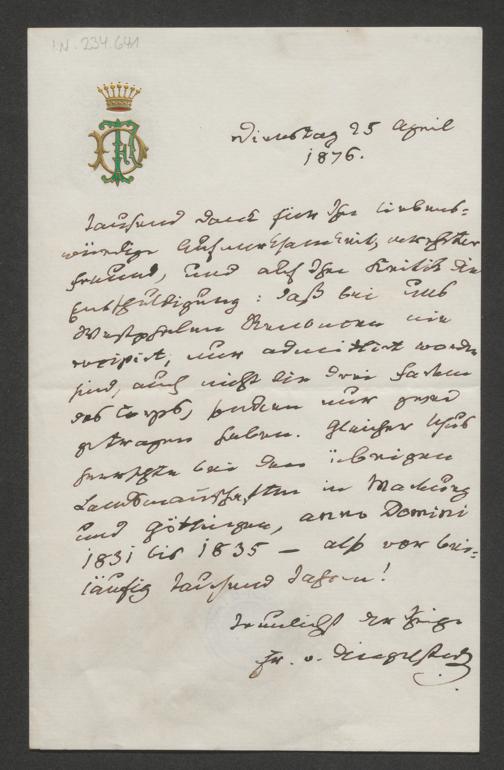 I.N. 234.641
Dienstag 25 April
1876.
Tausend Dank für Ihre liebens-
würdige Aufmerksamkeit, verehrter
Freund, und auf Ihre Kritik die
Entschuldigung: daß bei uns
Westphalen Renoncen nie
recipirt, nur admittirt worden
sind, auch nicht die drei Farben
des Corps, sondern nur zwei
getragen haben. Gleicher Usus
herrschte bei den übrigen
Landsmannschaften in Marburg
und Göttingen, anno Domini
1831 bis 1835 — also vor bei-
läufig tausend Jahren!
Treulichst der Ihrige
Fr. v. Dingelstedt